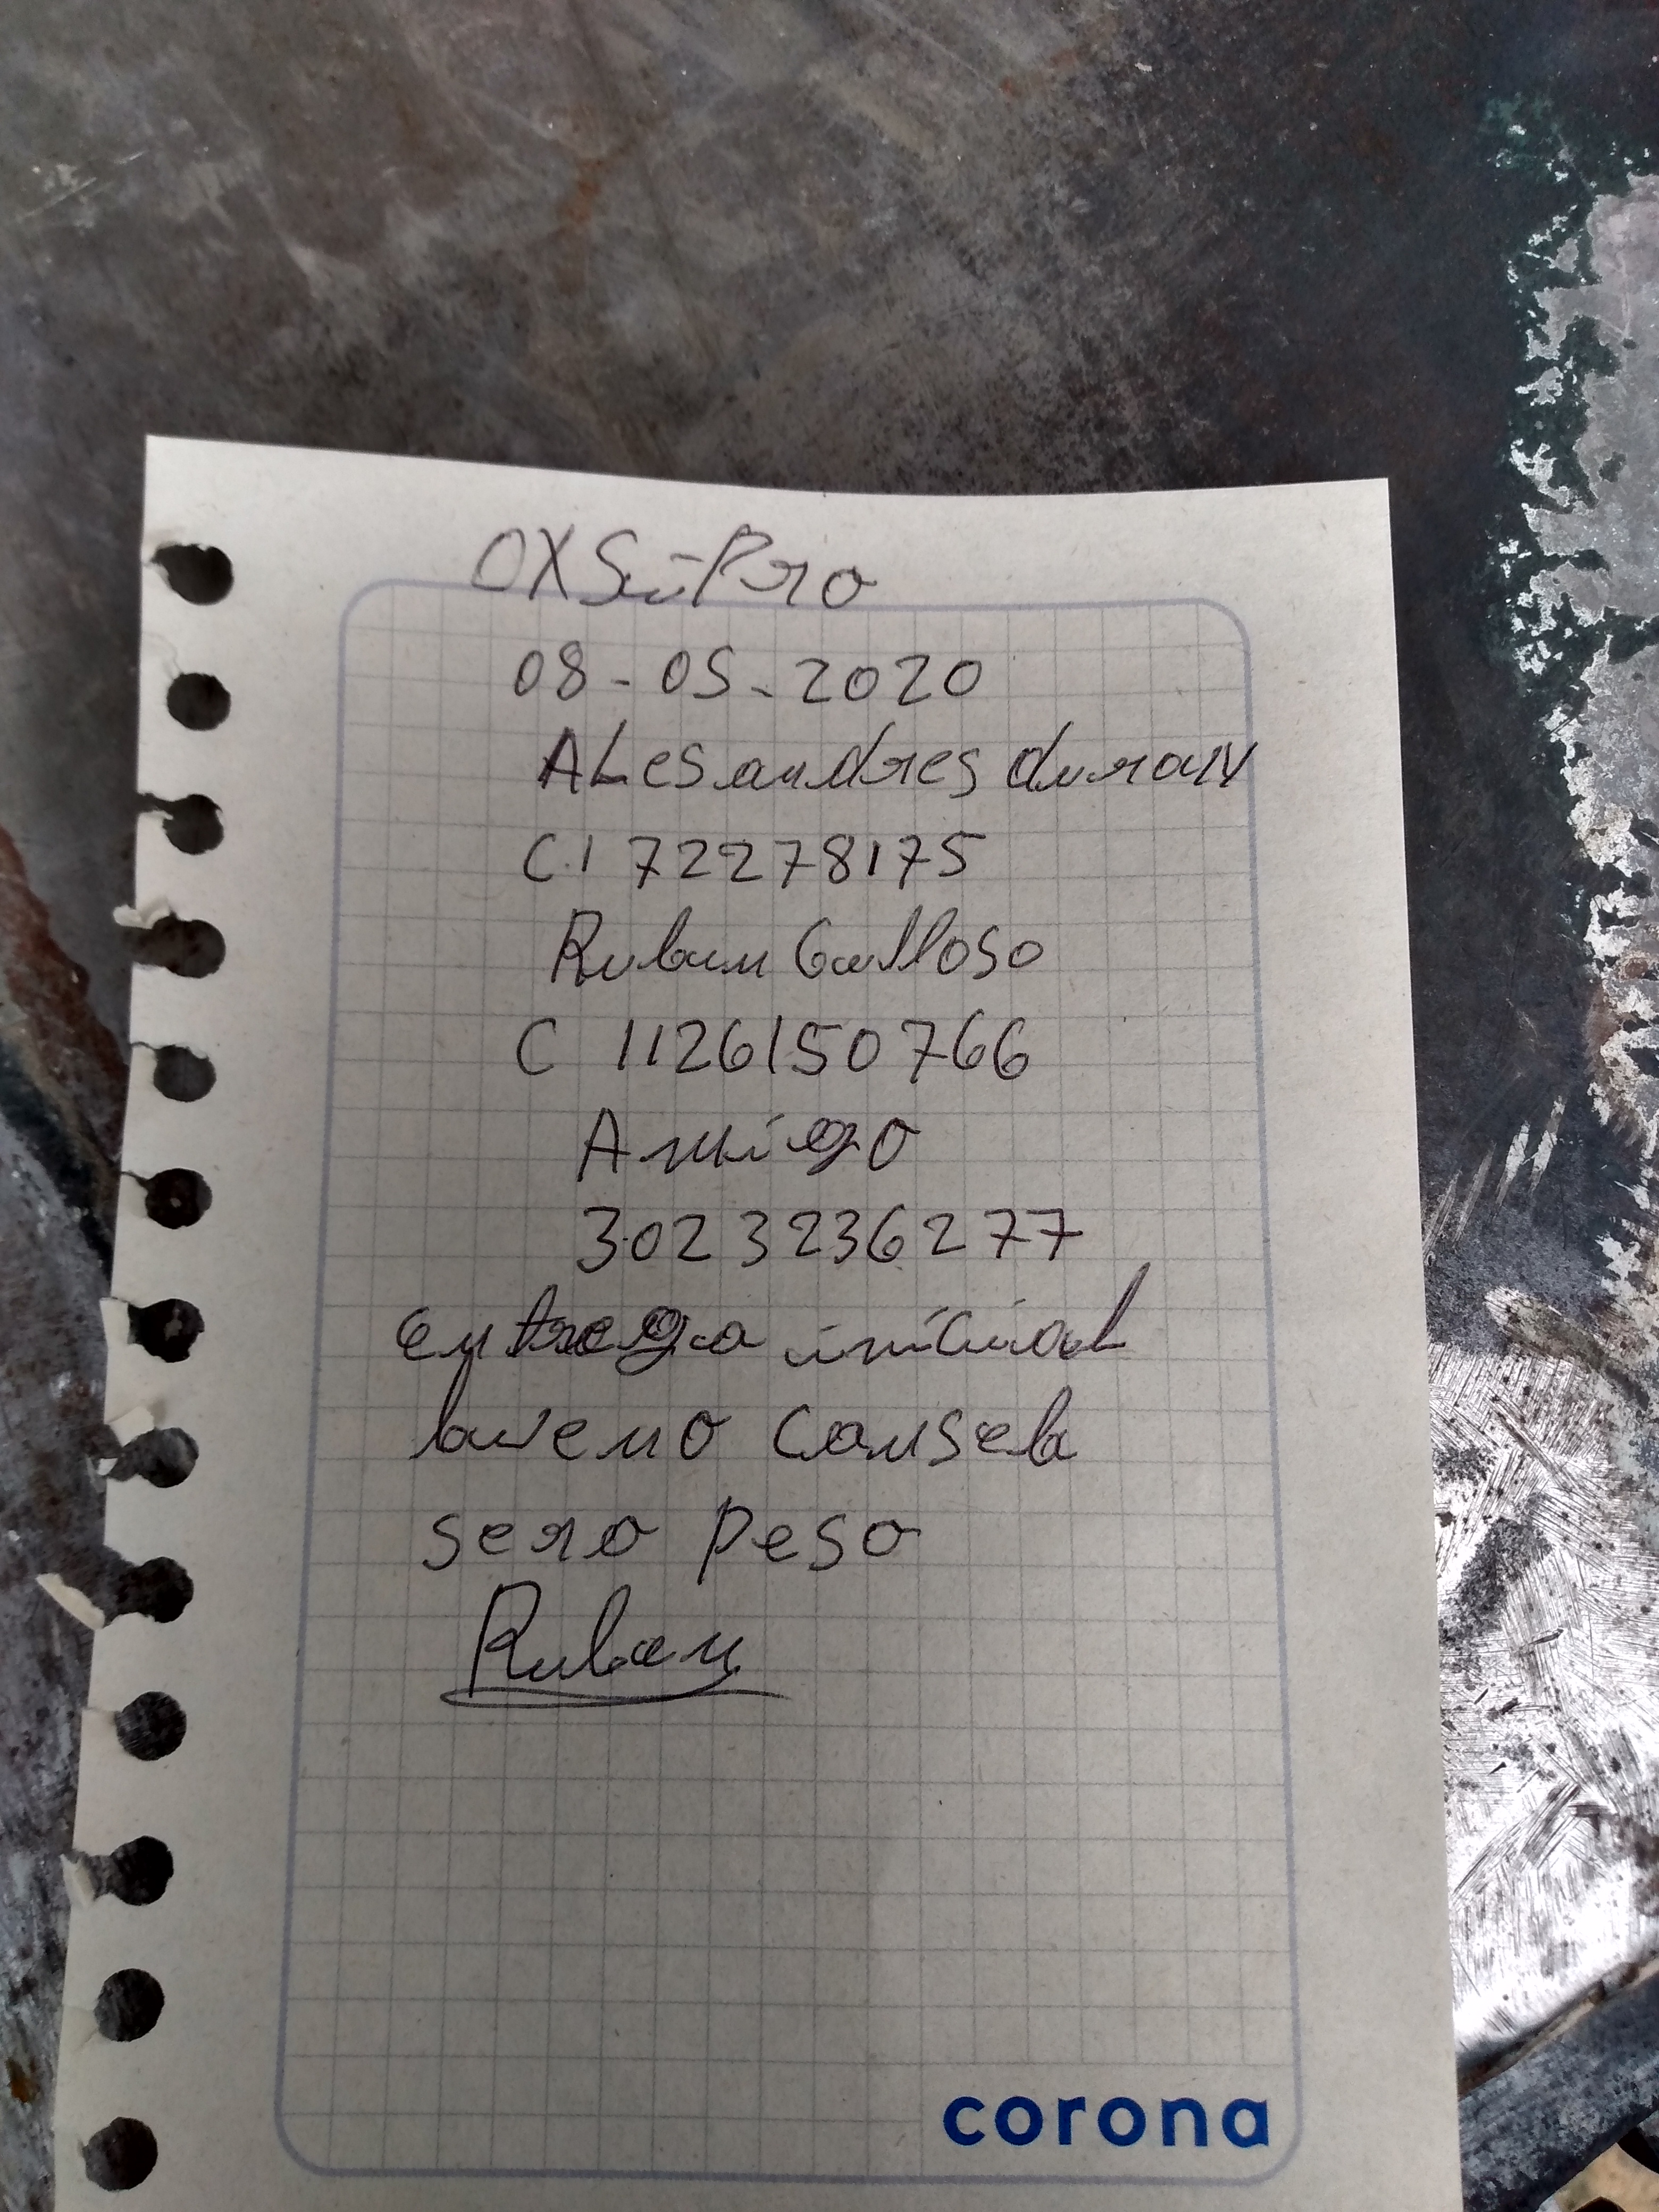 OXSi-Pro
08-05-2020
ALesandres duran
C.I 72278175
Ruben Galloso
C 1126150766
Amigo
3023236277
entrega inicial
bueno cansela
sero peso
Ruben
corona